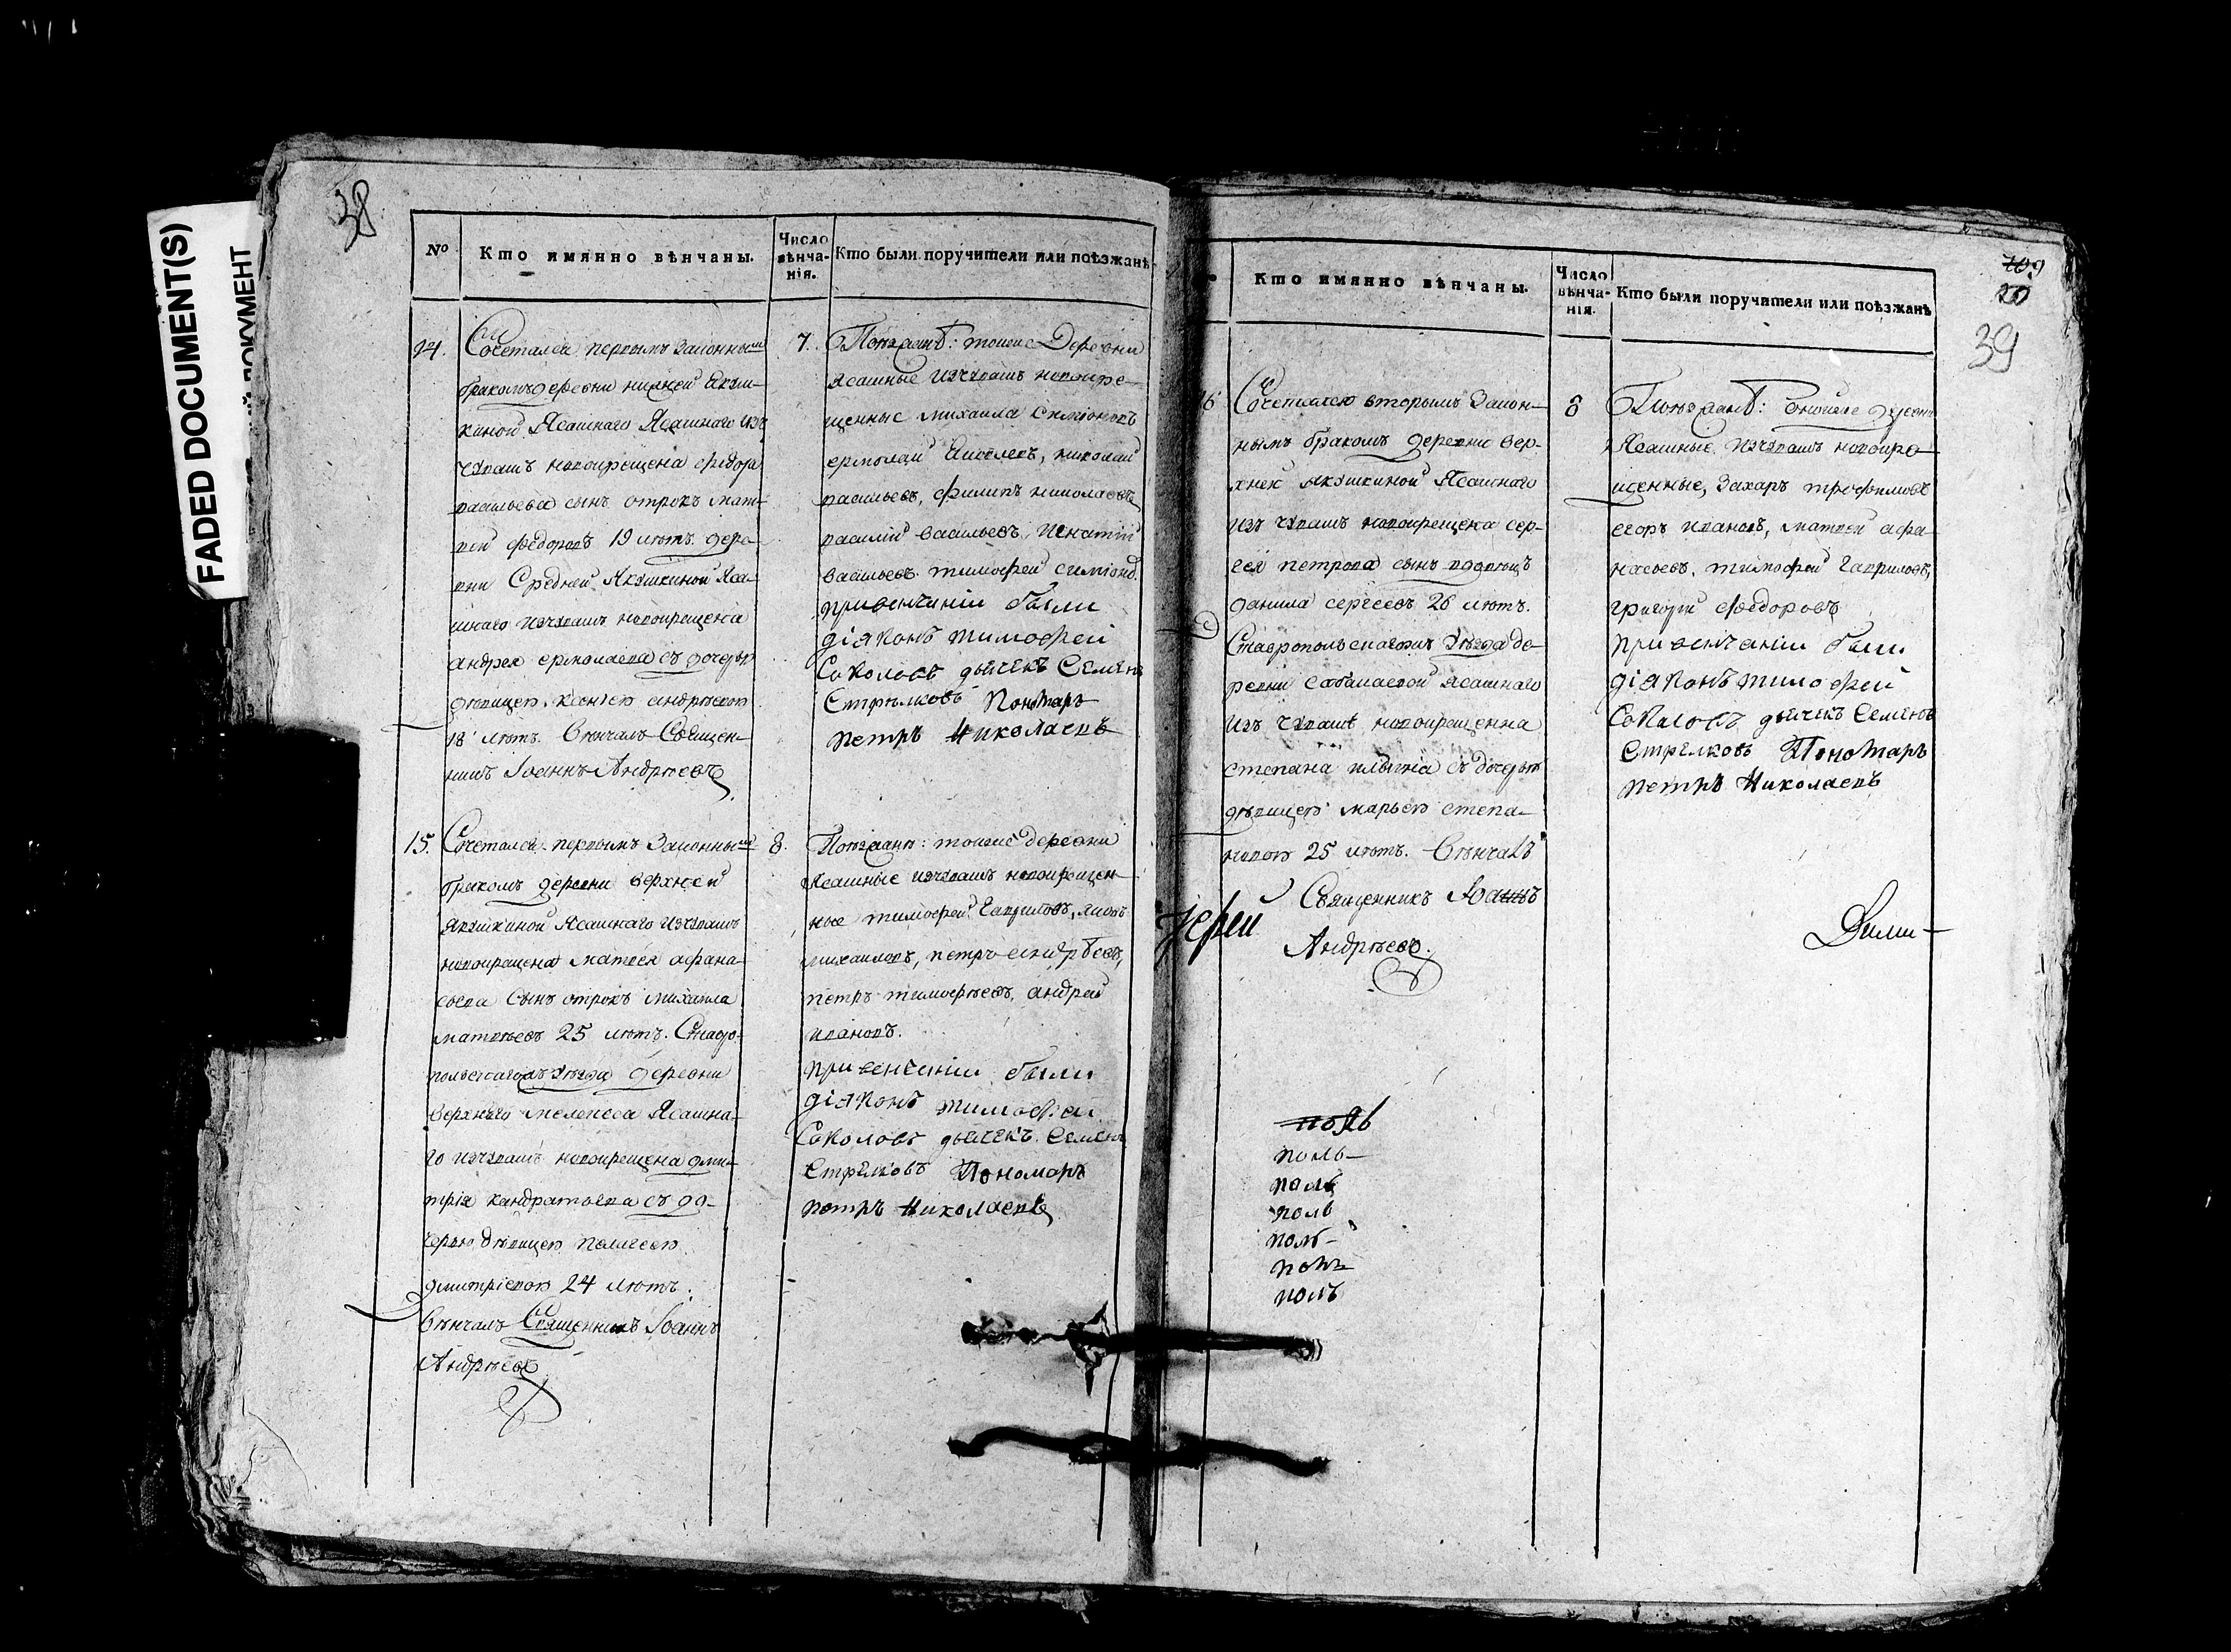 FADED DOCUMENT(S)
ДОКУМЕНТ
38
№
Кто имянно вѣнчаны.
Число вѣнча-
нія.
Кто были поручители или поѣзжанѣ
14.
Сочетался первымъ Законнымъ
бракомъ деревни нижней Якуш-
киной Ясашнаго Ясашнаго изъ
чувашъ новокрещена федора
васильева сынъ отрокъ мат-
вей федоровъ 19 лѣтъ. дере-
вни Средней Якушкиной Яса-
шнаго изчувашъ новокрещена
андрея ермолаева съ дочерью
дѣвицею, ксенiею андрѣевою
18 лѣтъ. Вѣнчалъ Священ-
никъ Іоаннъ Андрѣевъ
7.
Поѣзжанѣ: тоиже Деревни
Ясашные изчувашъ новокре-
щенные михаила симіоновъ
ермолай, николай
васильевъ, филипъ николаевъ
василій васильевъ, игнатій
васильевъ, тимофей симіонов.
при венчаніи были
діаконъ тимофей
Соколовъ дьячекъ Семенъ
Стрѣлковъ Пономарь
петръ Николаевъ
15.
Сочетался первымъ Законнымъ
бракомъ деревни верхней
Якушкиной Ясашнаго изчувашъ
новокрещена матвея афана-
сьева Сынъ отрокъ михаила
матвѣевъ 25 лѣтъ. Ставро-
польскаго уѣзда деревни
верхняго мелекеса Ясашна-
го изчувашъ новокрещена дми-
трія кандратьева съ до-
черью дѣвицею пелагеею
дмитріевою 24 лѣтъ.
Вѣнчалъ Священникъ Іоаннъ
Андрѣевъ
8.
Поѣзжанѣ: тоиже деревни
Ясашные изчувашъ новокрещен-
ные тимофей Гавриловъ, яковъ
михаиловъ, петръ андрѣевъ,
петръ тимофѣевъ, андрей
ивановъ.
при венчаніи были
діаконъ тимофей
Соколовъ дьячекъ Семенъ
Стрѣлковъ Пономарь
петръ Николаевъ
Кто имянно вѣнчаны.
Число
вѣнча-
нія.
Кто были поручители или поѣзжанѣ
39
16
Сочетался вторымъ Закон-
нымъ бракомъ деревни вер-
хнеи Якушкиной Ясашнаго
изъ чувашъ новокрещена сер-
гея петрова сынъ вдовецъ
данила сергеевъ 26 лѣтъ.
Ставропольскаго уѣзда де-
ревни Ясашнаго
изъ чувашъ новокрещенна
степана съ дочерью
дѣвицею марьею степа-
новою 25 лѣтъ. Вѣнчалъ
Священникъ Іоаннъ
Андрѣевъ.
Іерей
8
Поѣзжанѣ: деревни
Ясашные изчувашъ новокре-
щенные, Захаръ трофимовъ
егоръ ивановъ, матвей афа-
насьевъ, тимофей Гавриловъ,
григорій федоровъ
при венчаніи были
діаконъ тимофей
Соколовъ дьячекъ Семенъ
Стрѣлковъ Пономарь
петръ Николаевъ
Дими-